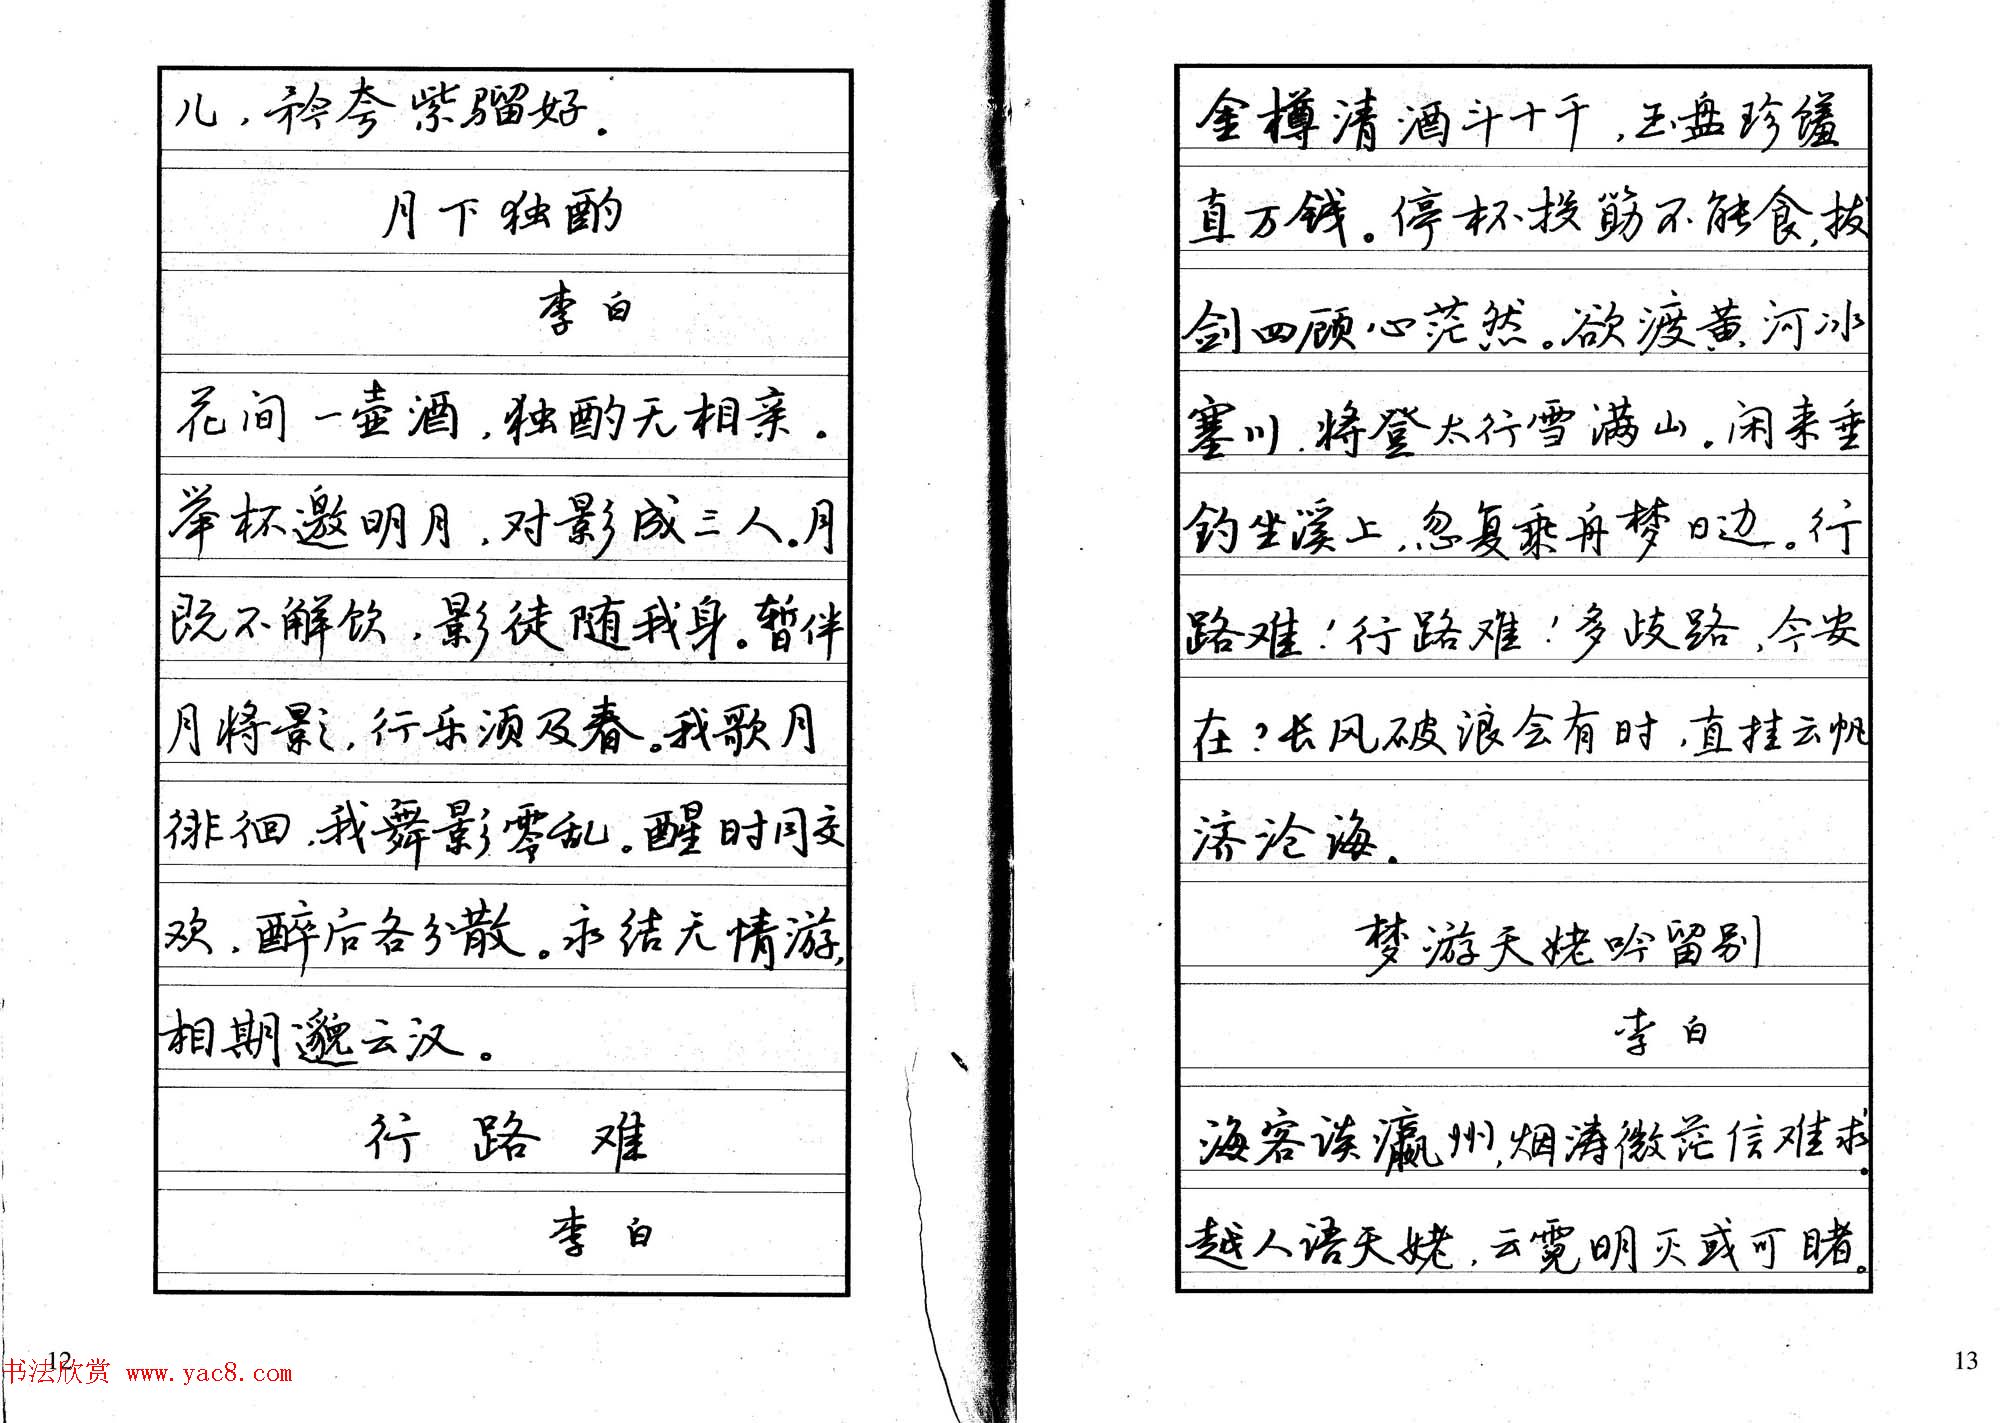 儿，矜夸紫骝好．
月下独酌
李白
花间一壶酒，独酌无相亲．
举杯邀明月，对影成三人。月
既不解饮，影徒随我身。暂伴
月将影，行乐须及春。我歌月
徘徊，我舞影零乱。醒时同交
欢，醉后各分散。永结无情游，
相期邈云汉。
行路难
李白
12
书法欣赏 www.yac8.com
金樽清酒斗十千，玉盘珍馐
直万钱。停杯投筯不能食，拔
剑四顾心茫然。欲渡黄河冰
塞川，将登太行雪满山。闲来垂
钓坐溪上，忽复乘舟梦日边。行
路难！行路难！多歧路，今安
在？长风破浪会有时，直挂云帆
济沧海．
梦游天姥吟留别
李白
海客谈瀛州，烟涛微茫信难求．
越人语天姥，云霓明灭或可睹。
13